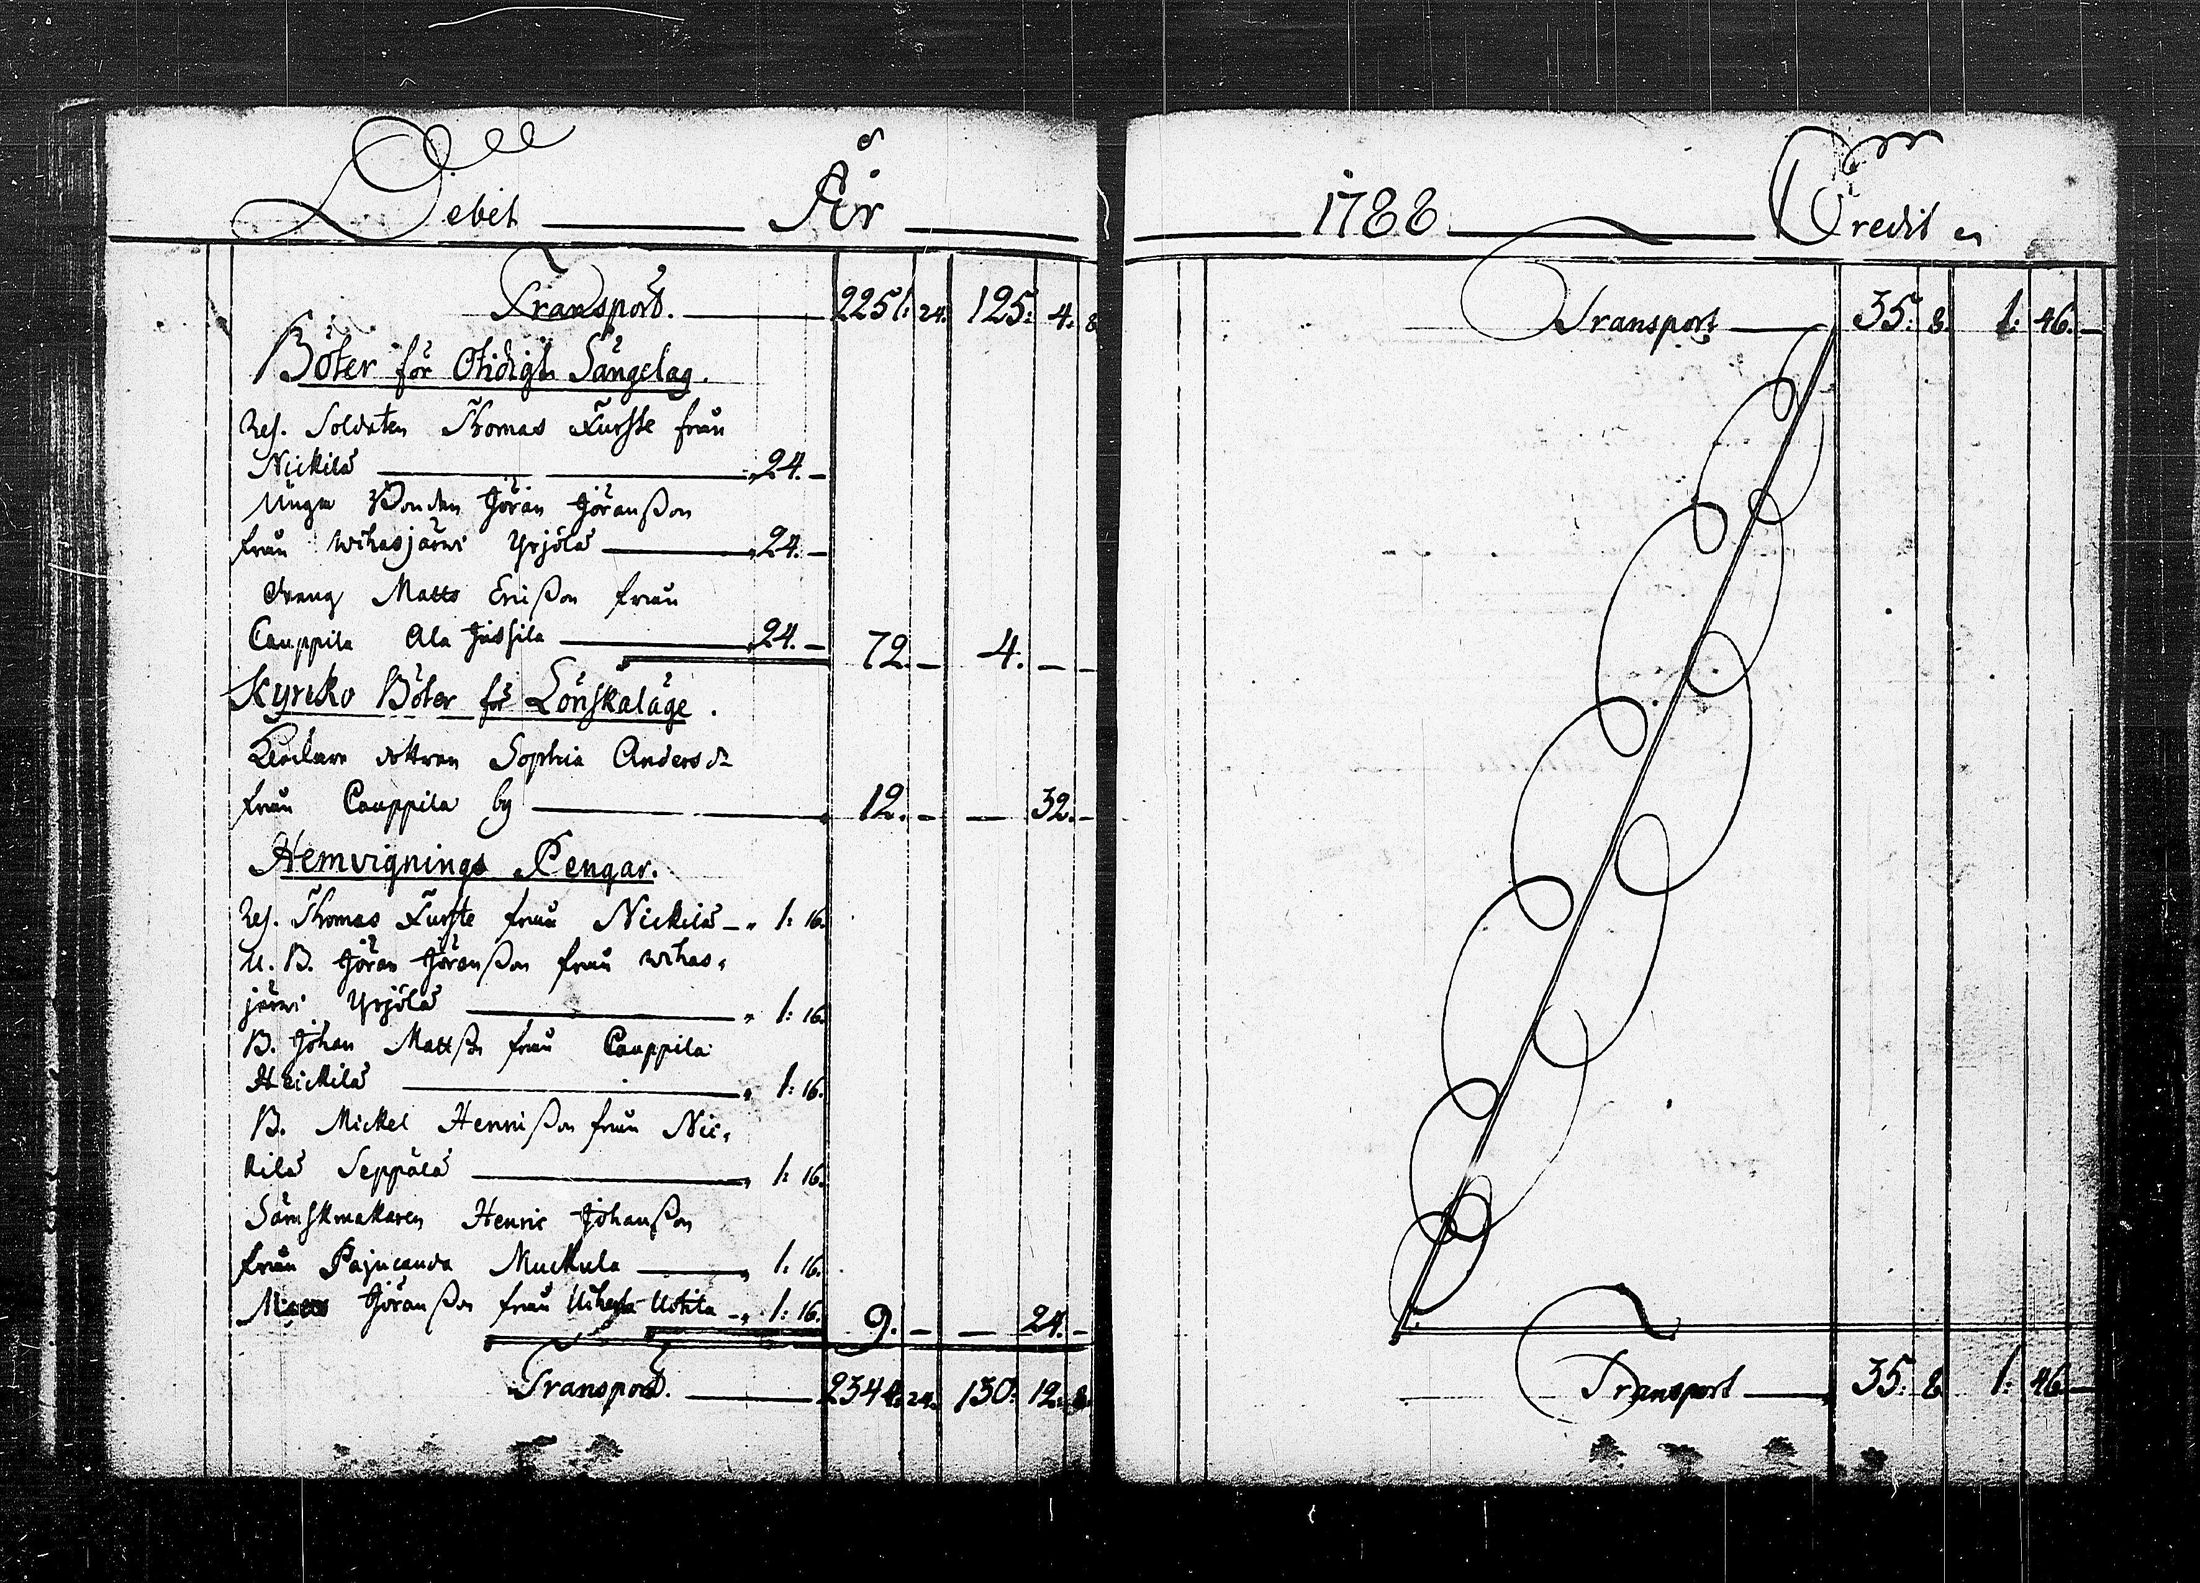 Debet År
Transport. 2251: 24. 125: 4. 8
Böter för Otidigt Sängelag.
Res. Soldaten Thomas Furste från
Nickilä 24. —
Unga Bonden Jöran Jöranßon
från Wihasjärwi Yrjölä 24. —
Dreng Matts Erißon från
Cauppila Ala Jussila 24. — 72. — 4. — —
Kyrcko Böter för Lönskaläge.
dottren Sophia Andersdr
från Cauppila by 12. — — 32. —
Hemvignings Pengar.
Res. Thomas Furste från Nickilä 1: 16.
U. B. Jöran Jöranßon från Wihas,
järwi Yrjölä 1: 16.
B. Johan Mattßon från Cauppila
Heickilä 1: 16.
B. Mickel Henrißon från Nic,
kilä Seppälä 1: 16.
Sämskmakaren Henric Johanßon
från Pajucanda Muckula 1: 16.
Matts Jöranßon från Uotila 1: 16. 9. — — 24. —
Transport. 2344: 24. 130: 12. 8.
1788 Credit
Transport 35: 8. 1: 46. —
Transport 35: 8. 1: 46 —